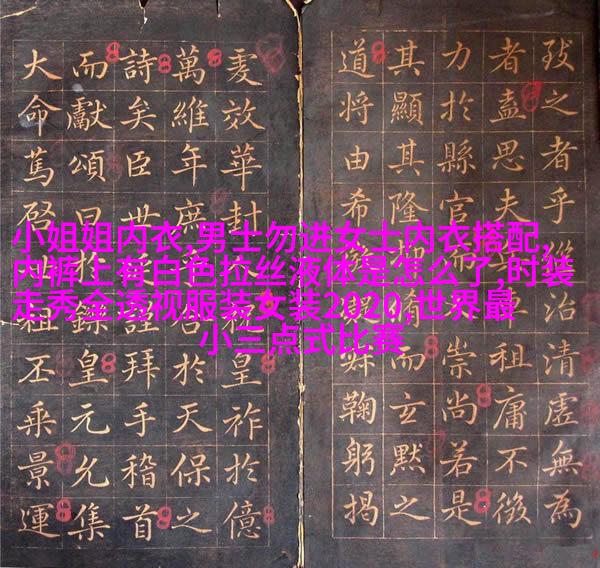 小姐姐内衣,男士勿进女士内衣搭配,
内裤上有白色拉丝液体是怎么了,时装
走秀全透视服装女装2020,世界最
小三点式比赛
之者乎治清虛無為
者盍思夫租庸不徵
力於縣官崇尚若是
其顯其隆而玄默之
道將由希鞠躬揭
效華封皇祚於億
萬維年庶於天保之
詩矣臣世謹拜手稽首
而獻頌曰於鑠皇元允集
大命篤啓祖丕乘景運